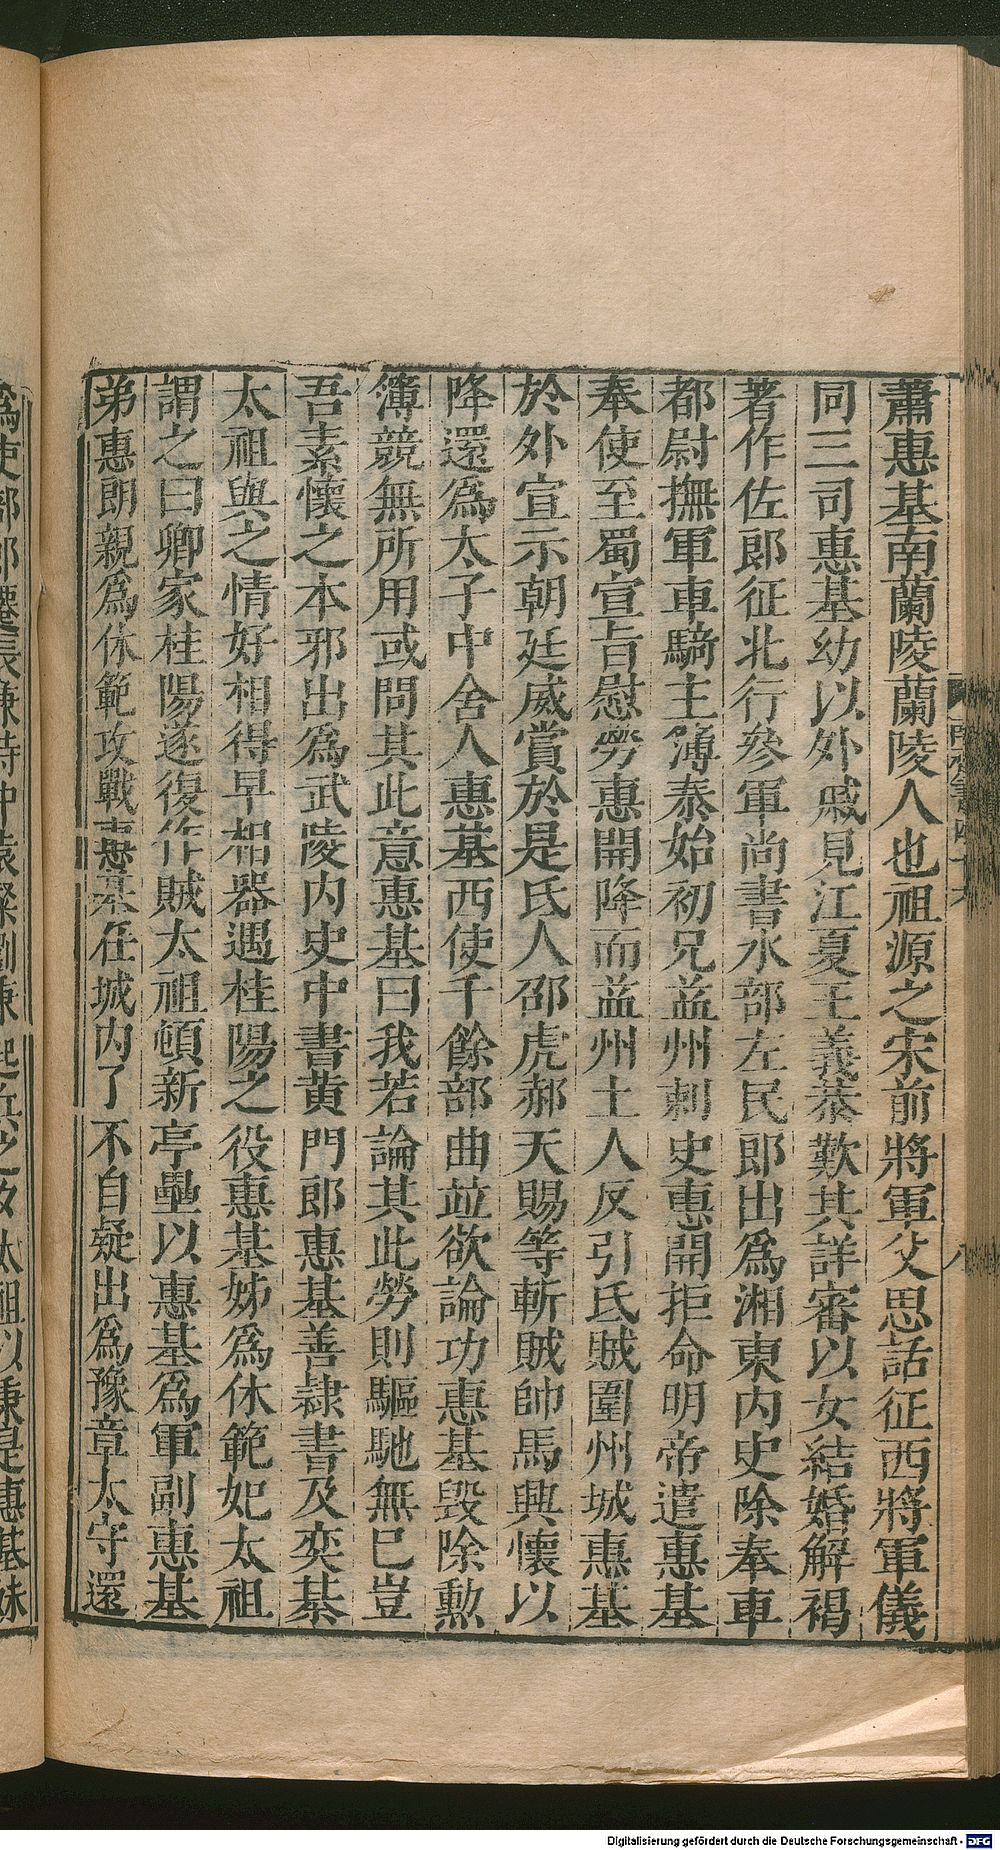 蕭惠基南蘭陵蘭陵人也祖源之宋前將軍父思話征西將軍儀
同三司惠基幼以外戚見江夏王義恭歎其詳審以女結婚解褐
著作佐郎征北行參軍尚書水部左民郎出爲湘東內史除奉車
都尉撫軍車騎主簿泰始初兄益州刺史惠開拒命明帝遣惠基
奉使至蜀宣旨慰勞惠開降而益州土人反引氐賊圍州城惠基
於外宣示朝廷威賞於是氐人邵虎郝天賜等斬賊帥馬興懷以
降還爲太子中舍人惠基西使千餘部曲並欲論功惠基毀除勲
簿競無所用或問其此意惠基曰我若論其此勞則驅馳無已豈
吾素懷之本邪出爲武陵內史中書黃門郎惠基善隷書及奕棊
太祖與之情好相得早相器遇桂陽之役惠基姊爲休範妃太祖
謂之曰卿家桂陽遂復作賊太祖頓新亭壘以惠基爲軍副惠基
弟惠朗親爲休範攻戰惠基在城內了不自疑出爲豫章太守還
爲吏部郎遷長兼侍中袁粲劉秉起兵之夕太祖以秉是惠基妹
八
Digitalisierung gefördert durch die Deutsche Forschungsgemeinschaft - DFG